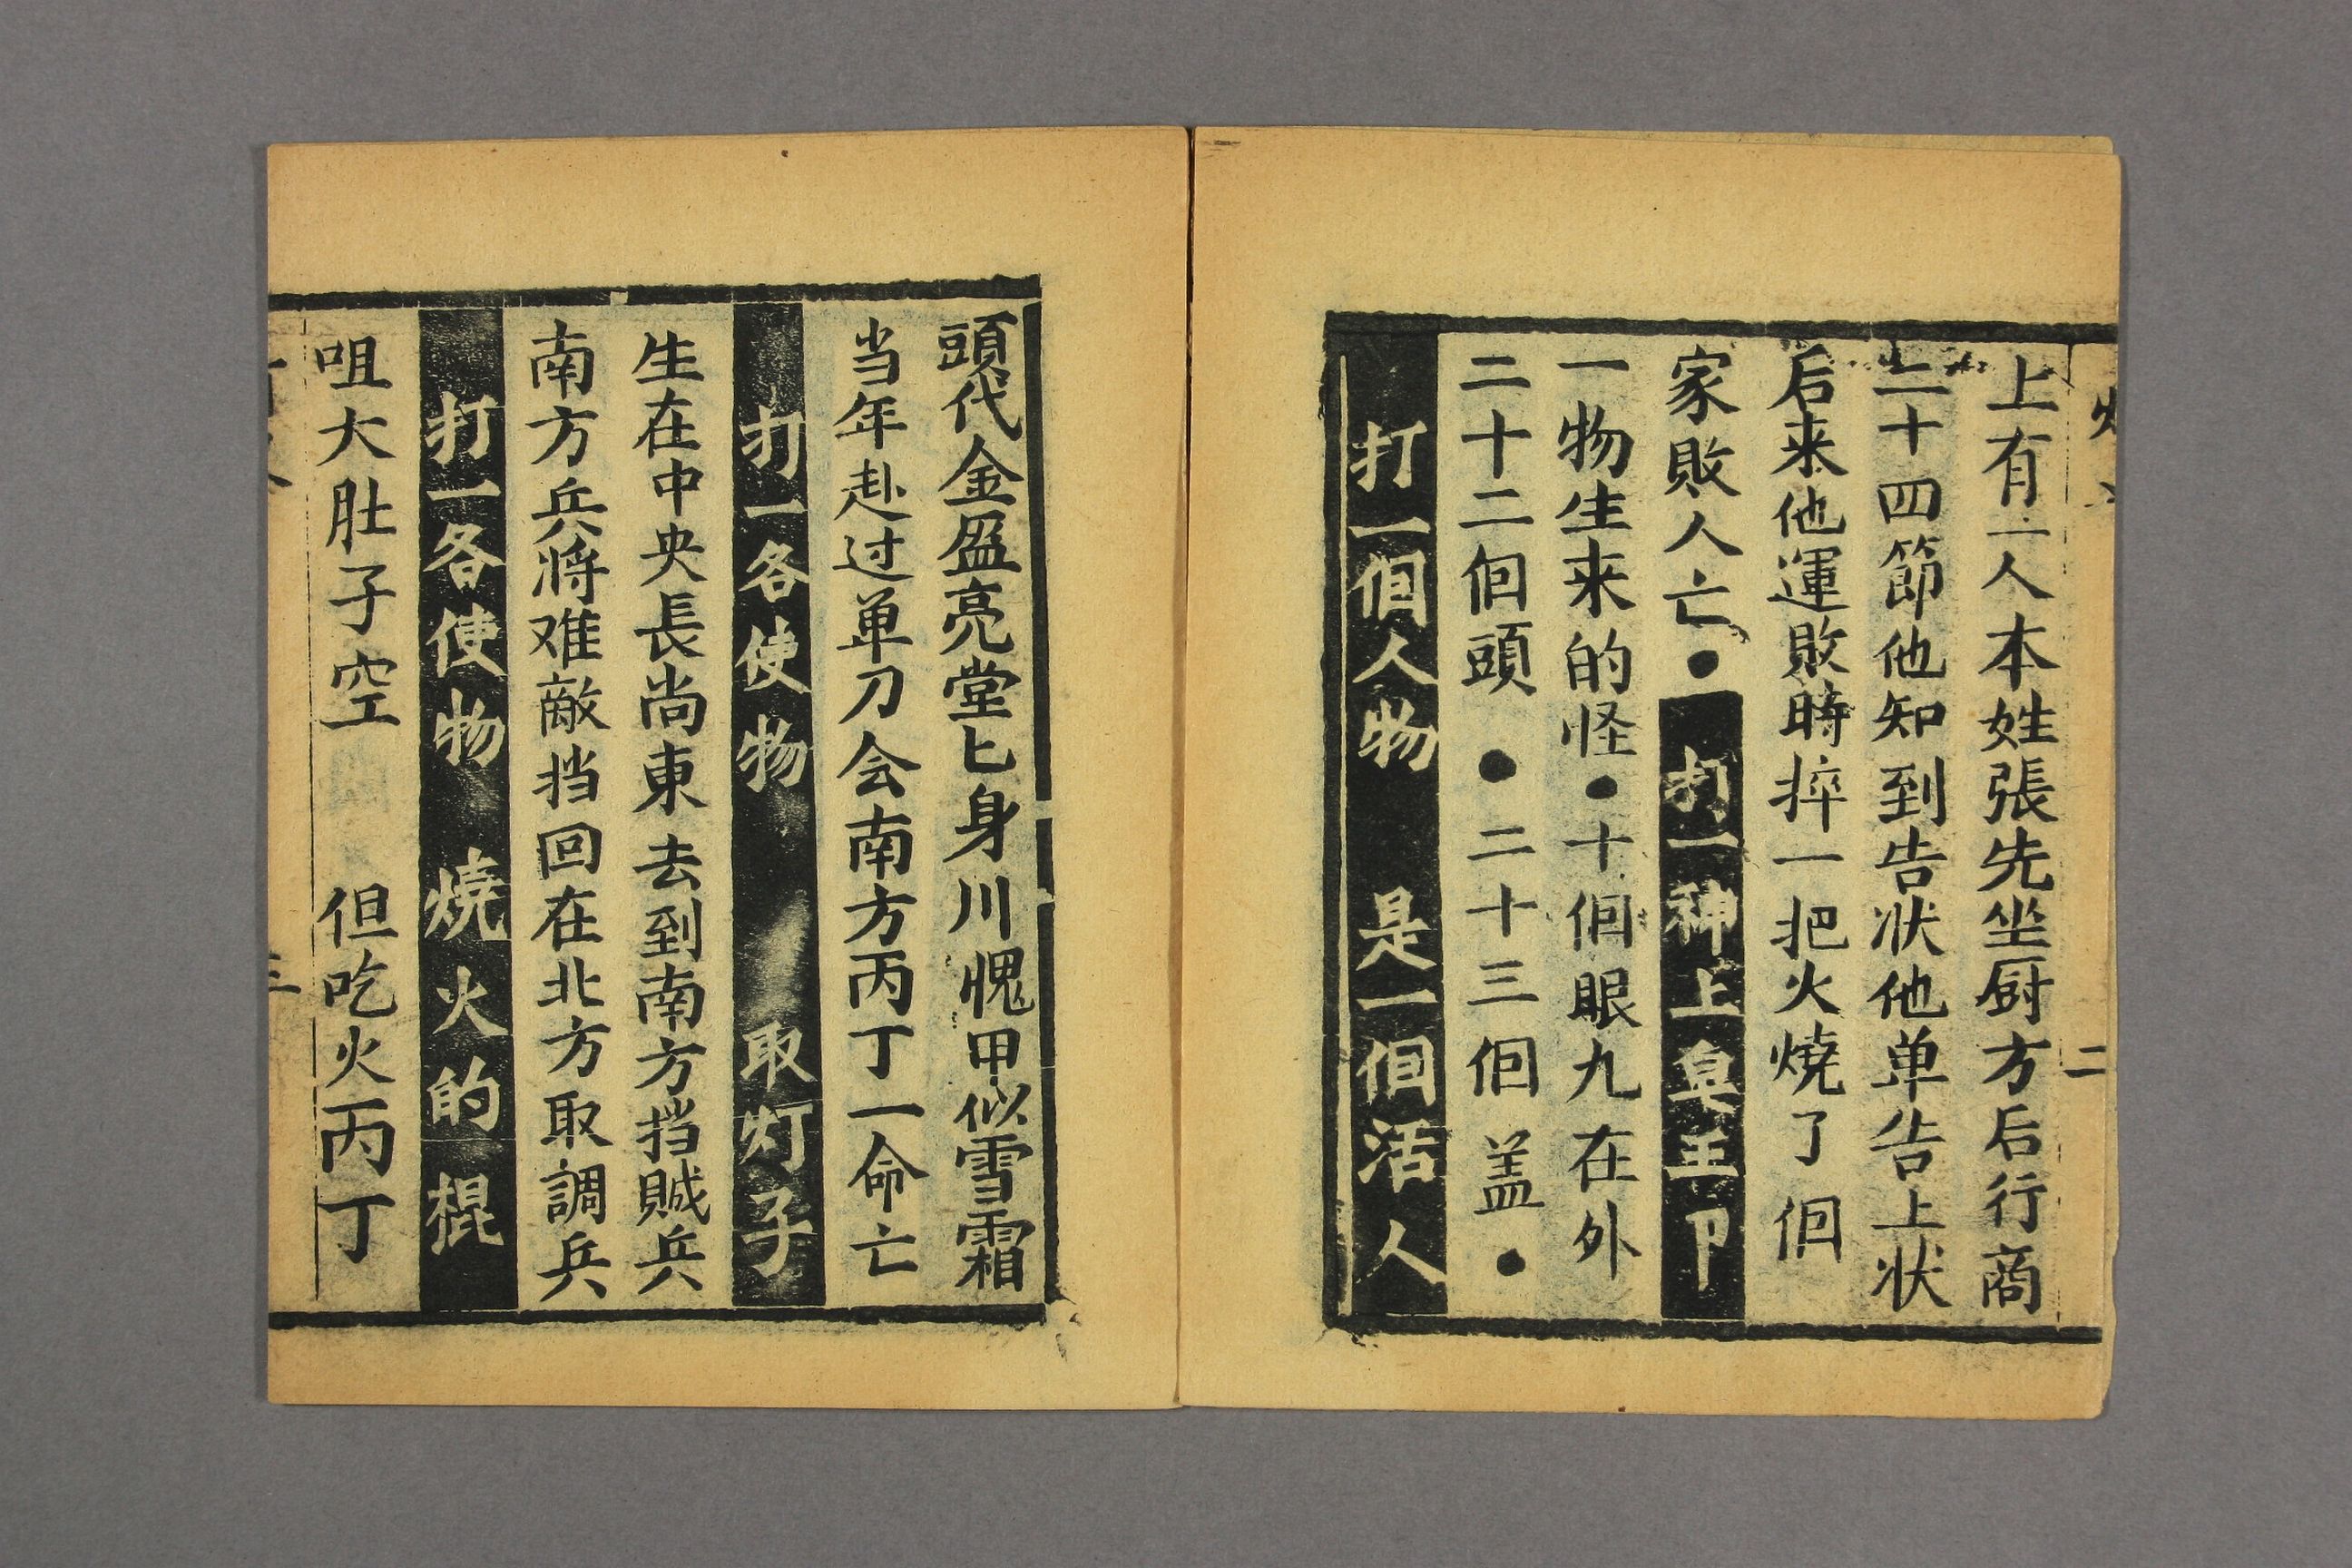 二
上有一人本姓張先坐厨方后行商
二十四節他知到告狀他单告上状
后来他運敗時捽一把火燒了佪
家敗人亡●打一神上皇王卩
一物生来的怪●十佪眼九在外
二十二佪頭●二十三佪盖●
打一佪人物 是一佪活人
頭代金盔亮堂匕身川愧甲似雪霜
当年赴过单刀会南方丙丁一命亡
打一各使物 取灯子
生在中央長尚東去到南方挡賊兵
南方兵將难敵挡回在北方取調兵
打一各使物 燒火的棍
咀大肚子空 但吃火丙丁
三